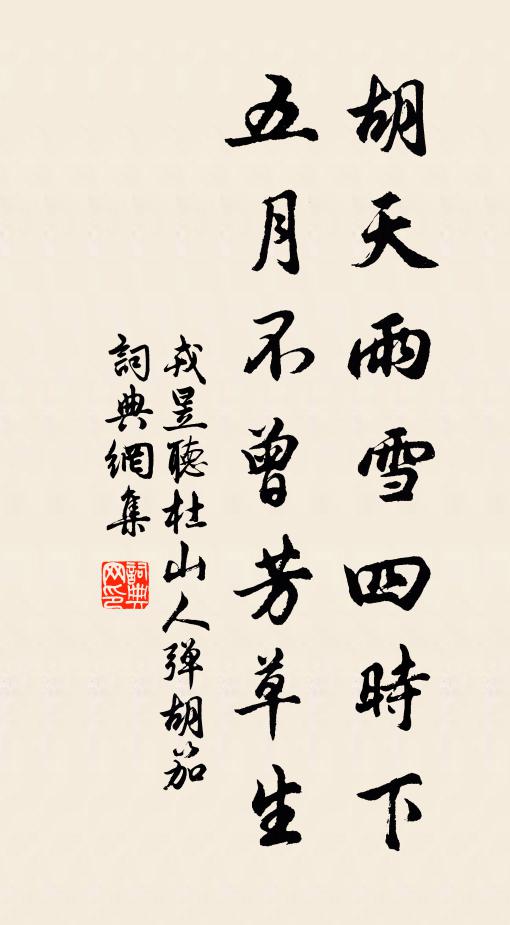 胡天雨雪四時下
五月不曾芳草生
戎昱聽杜山人彈胡笳
詞典網集
詞典網印